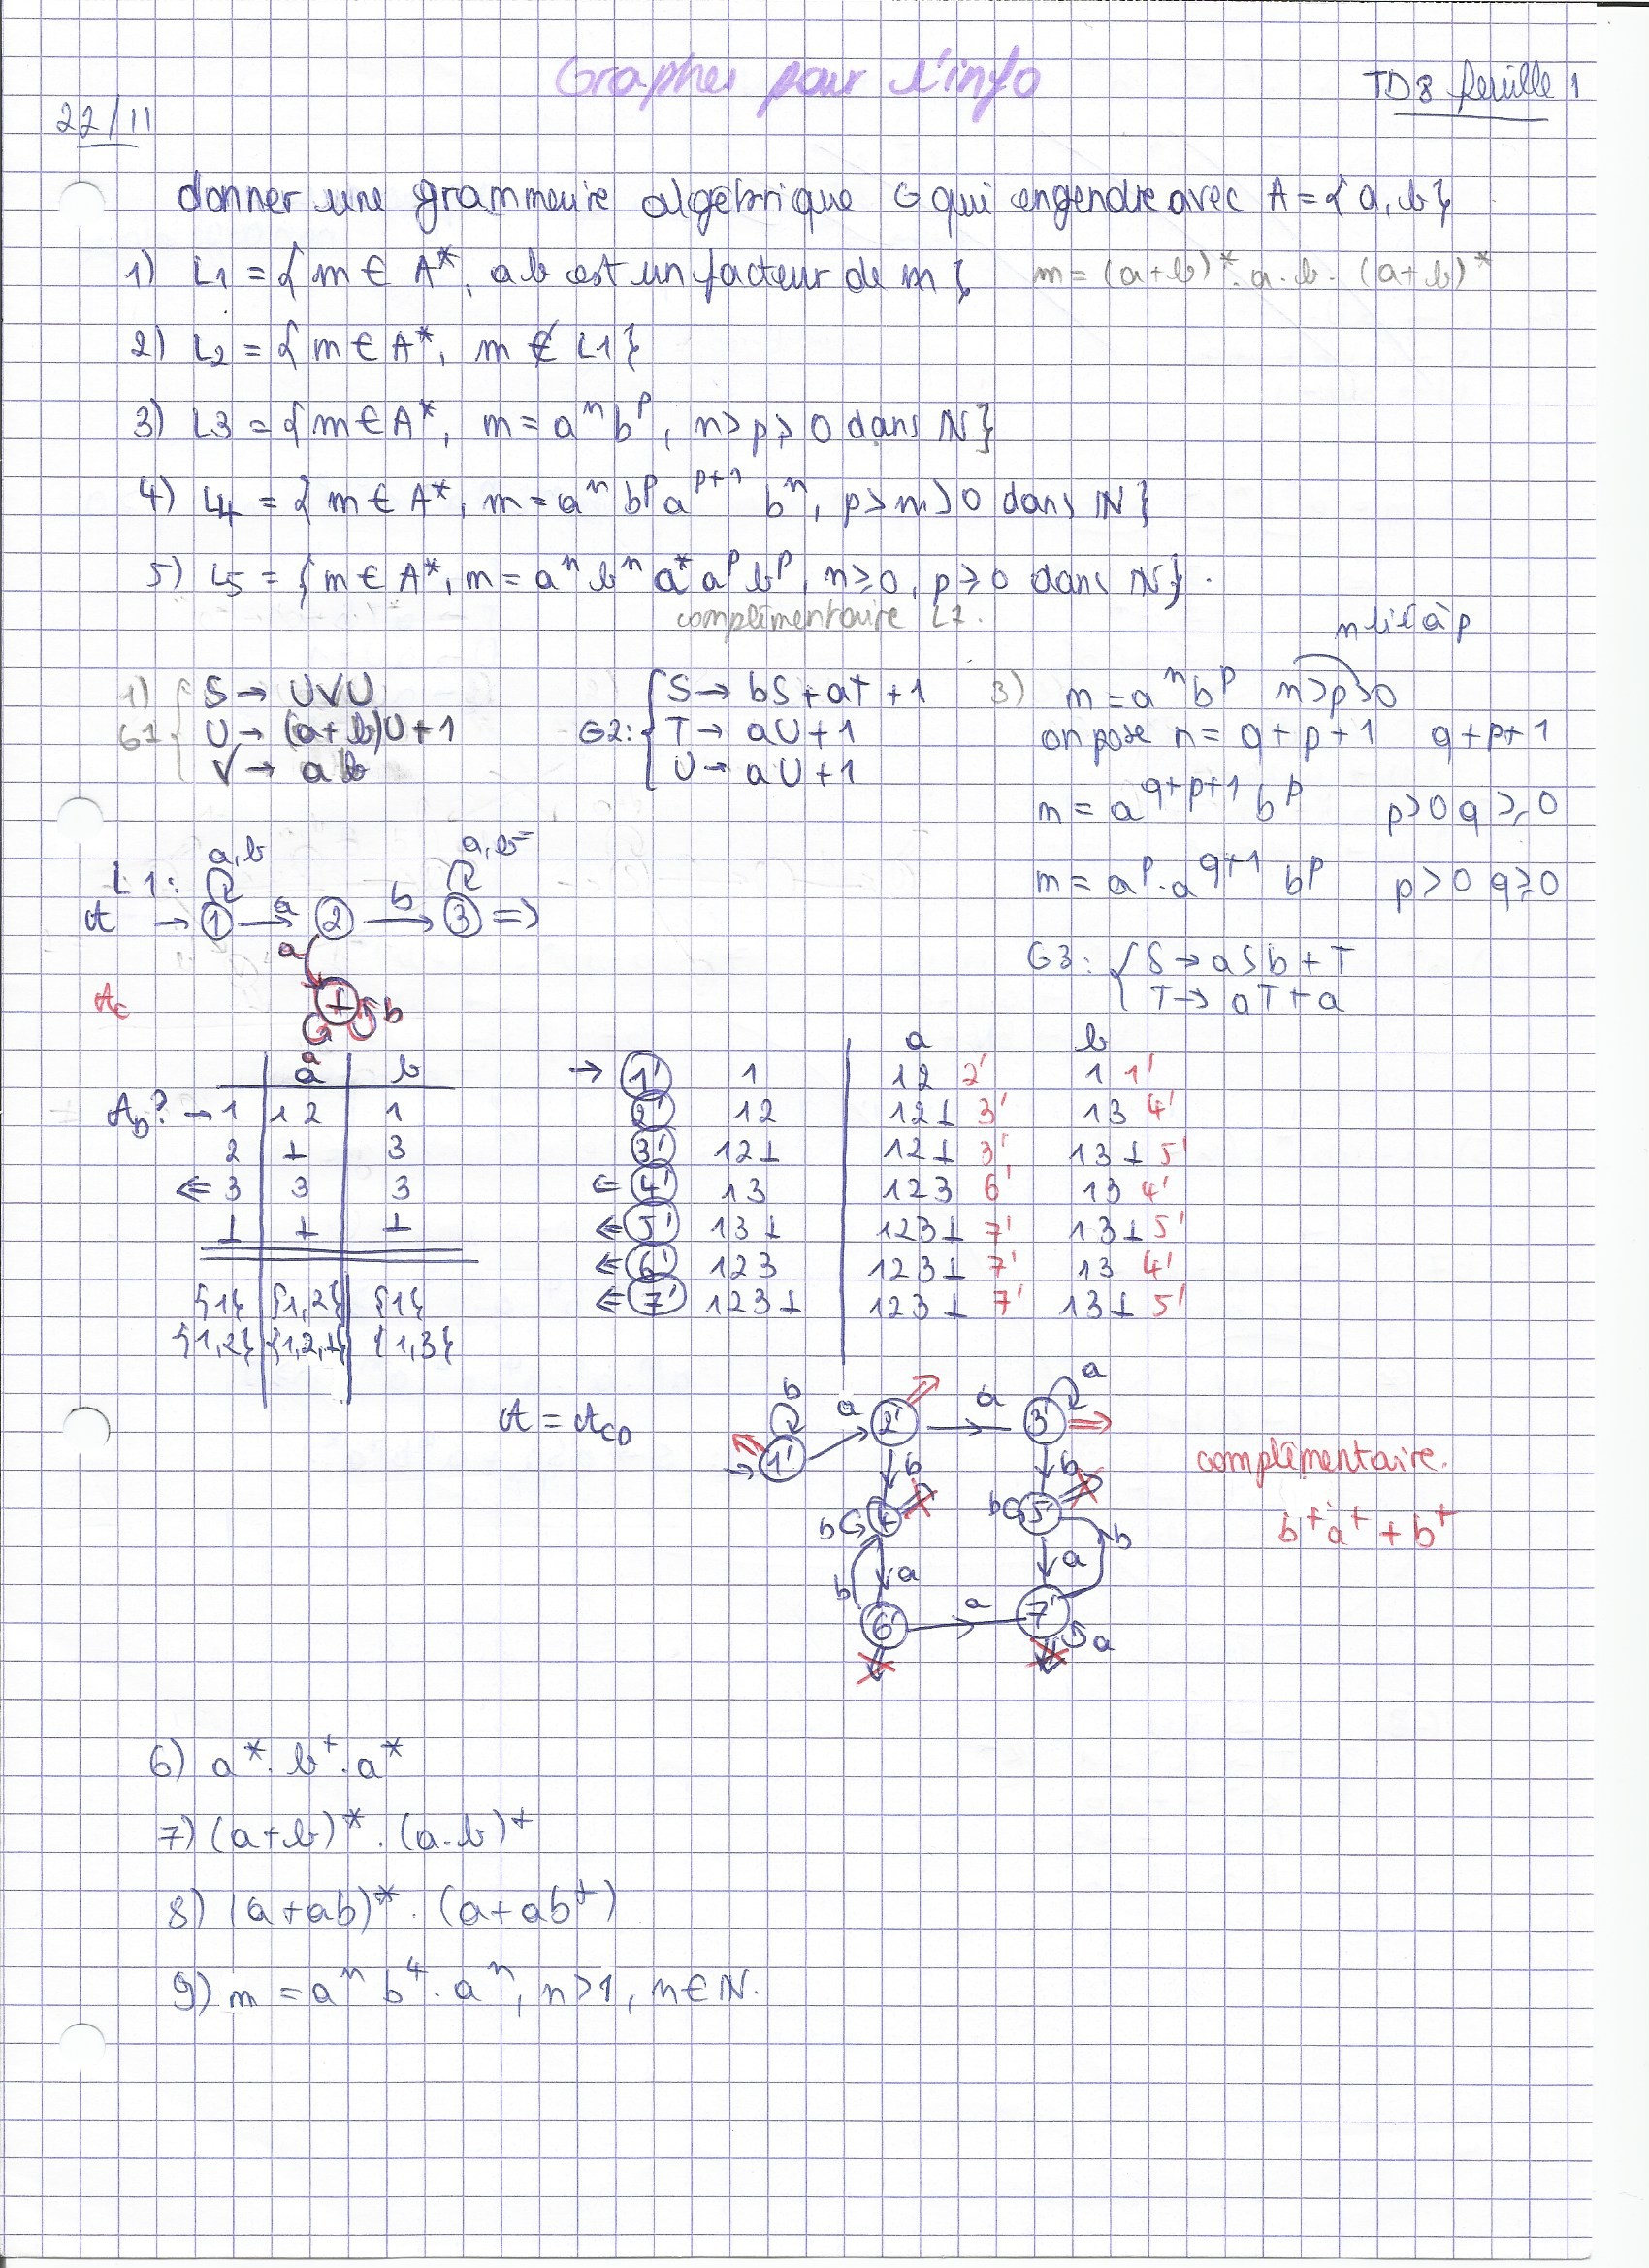 Graphes pour l'info
TD8 feuille 1
22/11
donner une grammaire algébrique G qui engendre avec A = { a, b }
1) L1 = { m ∈ A*, ab est un facteur de m } m = (a+b)*. a. b. (a+b)*
2) L2 = { m ∈ A*, m ∉ L1 }
3) L3 = { m ∈ A*, m = a^n b^p, n > p > 0 dans N }
4) L4 = { m ∈ A*, m = a^n b^p a^{p+1} b^n, p > m > 0 dans N }
5) L5 = { m ∈ A*, m = a^n b^n a* a^p b^p, n ≥ 0, p ≥ 0 dans N }.
complémentaire L1.
n lié à p
1) G1 { S → UVU
U → (a+b)U + 1
V → ab
G2: { S → bS + aT + 1
T → aU + 1
U → aU + 1
3) m = a^n b^p n > p > 0
on pose n = q + p + 1 q + p + 1
m = a^{q+p+1} b^p p > 0 q ≥ 0
m = a^p . a^{q+1} b^p p > 0 q ≥ 0
G3: { S → aSb + T
T → aT + a
L1:
A → 1 a 2 b 3 ⇒
a, b a, b
a
Ac ⊥ b
a
a b
Ab? → 1 12 1
2 ⊥ 3
⇐ 3 3 3
⊥ ⊥ ⊥
{1} {1,2} {1}
{1,2} {1,2,⊥} {1,3}
a b
→ 1' 1 12 2' 1 1'
2' 12 12⊥ 3' 13 4'
3' 12⊥ 12⊥ 3' 13⊥ 5'
⇐ 4' 13 123 6' 13 4'
⇐ 5' 13⊥ 123⊥ 7' 13⊥ 5'
⇐ 6' 123 123⊥ 7' 13 4'
⇐ 7' 123⊥ 123⊥ 7' 13⊥ 5'
A = A_CD
b a a a
1' 2' 3'
b b
b 4' b 5'
b a a b
6' a 7' a
complémentaire.
b⁺a⁺ + b⁺
6) a*. b⁺. a*
7) (a+b)*. (a.b)⁺
8) (a+ab)*. (a+ab⁺)
9) m = a^n b^4 . a^n, n > 1, n ∈ N.